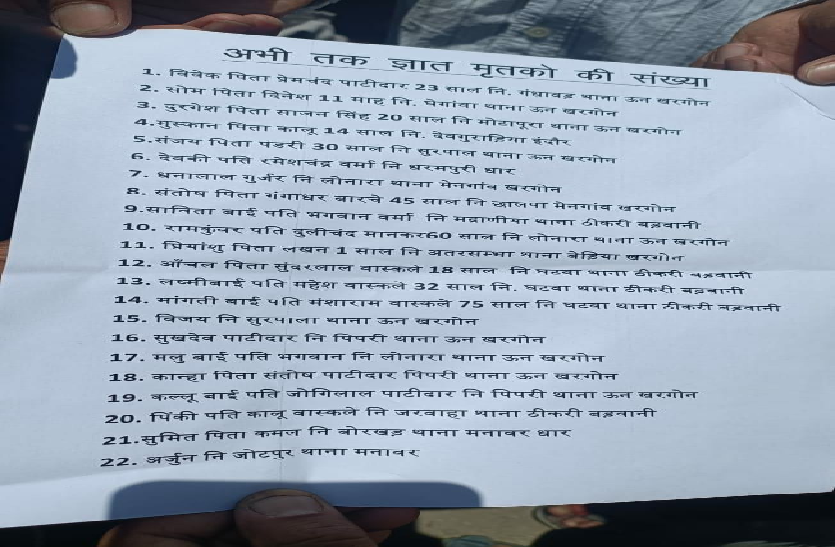 अभी तक ज्ञात मृतको की संख्या
1. विवेक पिता प्रेमचंद पाटीदार 23 साल नि. गंधावड थाना ऊन खरगोन
2. सोम पिता दिनेश 11 माह नि. घेगांवा थाना ऊन खरगोन
3. दुरगेश पिता साजन सिंह 20 साल नि मोटापूरा थाना ऊन खरगोन
4.मुस्कान पिता कालू 14 साल नि. देवगुराडिगा इंदौर
5.संजय पिता पडरी 30 साल नि सुरपाल थाना ऊन खरगोन
6. देवकी पति रमेशचंद्र वर्मा नि धरमपुरी धार
7. धनालाल गुर्जर नि लोनारा थाना मेनगांव खरगोन
8. संतोष पिता गंगाधर बारचे 45 साल नि खालपा मेनगांव खरगोन
9.सानिता बाई पति भगवान वर्मा नि थाना ठीकरी बड़वानी
10. रामकुंवर पति दुलीचंद मानकर60 साल नि लोनारा थाना ऊन खरगोन
11. प्रियांशु पिता लखन 1 साल नि अतरसम्भा थाना बेड़िया खरगोन
12. आँचल पिता सुंदरलाल वास्कले 18 साल नि घटवा थाना ठीकरी बड़वानी
13. लक्ष्मीबाई पति महेश वास्कले 32 साल नि. घटवा थाना ठीकरी बड़वानी
14. मांगती बाई पति मंशाराम वास्कले 75 साल नि घटवा थाना ठीकरी बड़वानी
15. विजय नि सुरपाला थाना ऊन खरगोन
16. सुखदेव पाटीदार नि पिपरी थाना ऊन खरगोन
17. मलु बाई पति भगवान नि लोनारा थाना ऊन खरगोन
18. कान्हा पिता संतोष पाटीदार पिपरी थाना ऊन खरगोन
19. कल्लू बाई पति जोगिलाल पाटीदार नि पिपरी थाना ऊन खरगोन
20. पिंकी पति कालू वास्कले नि जरवाहा थाना ठीकरी बड़वानी
21.सुमित पिता कमल नि बोरखड़ थाना मनावर धार
22. अर्जुन नि जोटपुर थाना मनावर